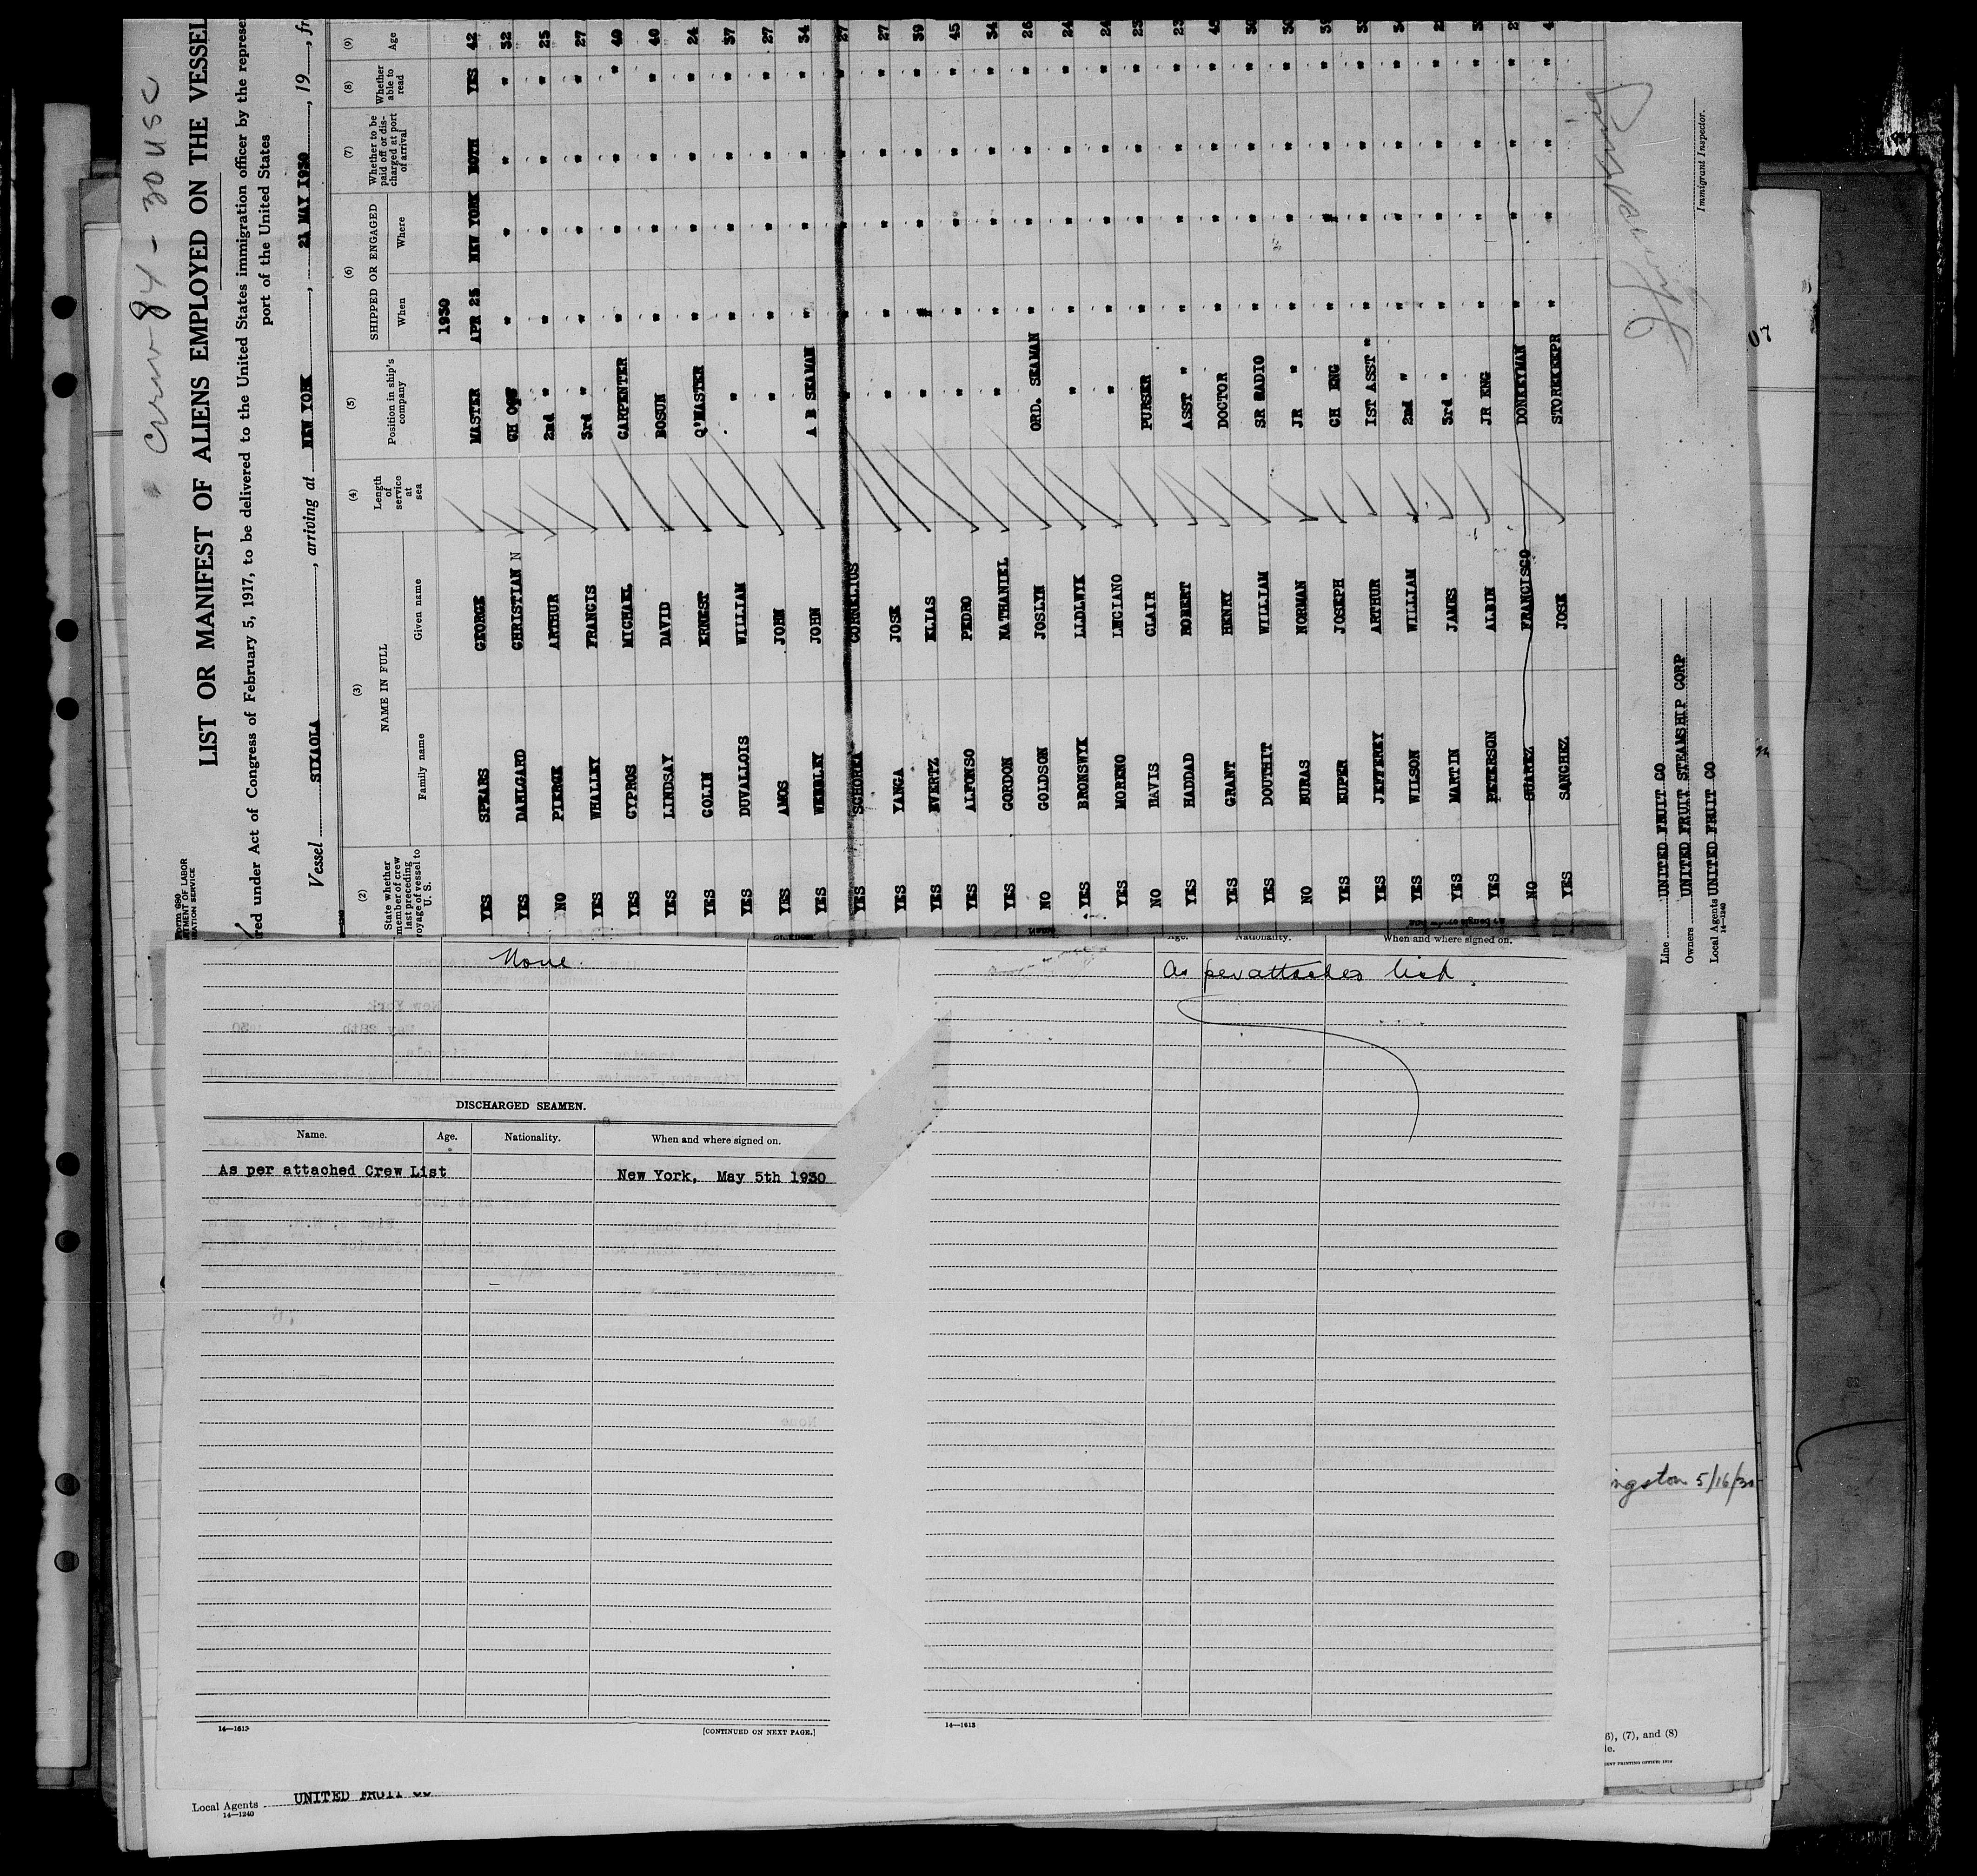 Crew 84 - 30 USC
LIST OR MANIFEST OF ALIENS EMPLOYED ON THE VESSEL
red under Act of Congress of February 5, 1917, to be delivered to the United States immigration officer by the represe
port of the United States
Vessel SIXAOLA, arriving at NEW YORK, 21 MAY 1930, 19, fr
(2) (3) (4) (5) (6) (7) (8) (9)
State whether member of crew last preceding voyage of vessel to U. S.
NAME IN FULL
Family name Given name
Length of service at sea
Position in ship's company
SHIPPED OR ENGAGED
When Where
Whether to be paid off or discharged at port of arrival
Whether able to read
Age
1930
YES SPEARS GEORGE MASTER APR 25 NEW YORK BOTH YES 42
YES DAHLGARD CHRISTIAN N CH OFF " " " " 32
NO PIERCE ARTHUR 2nd " " " " " 25
YES WHALLEY FRANCIS 3rd " " " " " 27
YES CYPROS MICHAEL CARPENTER " " " " 40
YES LINDSAY DAVID BOSUN " " " " 40
YES COLIN ERNEST Q'MASTER " " " " 24
YES DUVALLOIS WILLIAM " " " " " 37
YES AMOS JOHN " " " " " 27
YES WEMLEY JOHN A B SEAMAN " " " " 34
YES SCHOREA CORNELIUS " " " " " 27
YES YANGA JOSE " " " " " 27
YES EVERTZ ELIAS " " " " " 39
YES ALFONSO PEDRO " " " " " 45
YES GORDON NATHANIEL " " " " " 34
NO GOLDSON JOSLYN ORD. SEAMAN " " " " 26
YES BRONSWYK LLDLWYK " " " " " 24
YES MORENO LUCIANO " " " " " 24
NO DAVIS CLAIR PURSER " " " " 23
YES HADDAD ROBERT ASST " " " " " 23
YES GRANT HENRY DOCTOR " " " "
YES DOUTHIT WILLIAM SR RADIO " " " "
NO BURAS NORMAN JR " " " " "
YES EUPER JOSEPH CH ENG " " " "
YES JEFFEREY ARTHUR 1ST ASST " " " " "
YES WILSON WILLIAM 2nd " " " " "
YES MARTIN JAMES 3rd " " " " "
YES PETERSON ALBIN JR ENG " " " "
NO SUAREZ FRANCISCO DONKEYMAN " " " "
YES SANCHEZ JOSE STOREKEEPR " " " "
Line UNITED FRUIT CO
Owners UNITED FRUIT STEAMSHIP CORP
Local Agents UNITED FRUIT CO
14—1240
Immigrant Inspector.
None
DISCHARGED SEAMEN.
Name. Age. Nationality. When and where signed on.
As per attached Crew List New York, May 5th 1930
14—1613
[CONTINUED ON NEXT PAGE.]
Age. Nationality. When and where signed on.
As per attached list
14—1613
ngston 5/16/30
6), (7), and (8)
le.
Local Agents UNITED FRUIT CO
14—1240